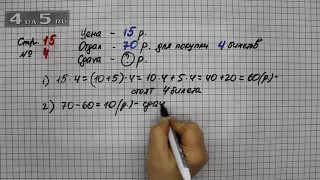 4DA5.RU
Стр. 15
№ 4
Цена - 15 р.
Отдал - 70 р. для покупки 4 билетов
Сдача - ? р.
1) 15·4=(10+5)·4=10·4+5·4=40+20=60(р.)-
стоят 4 билета
2) 70-60=10(р.)-сдач